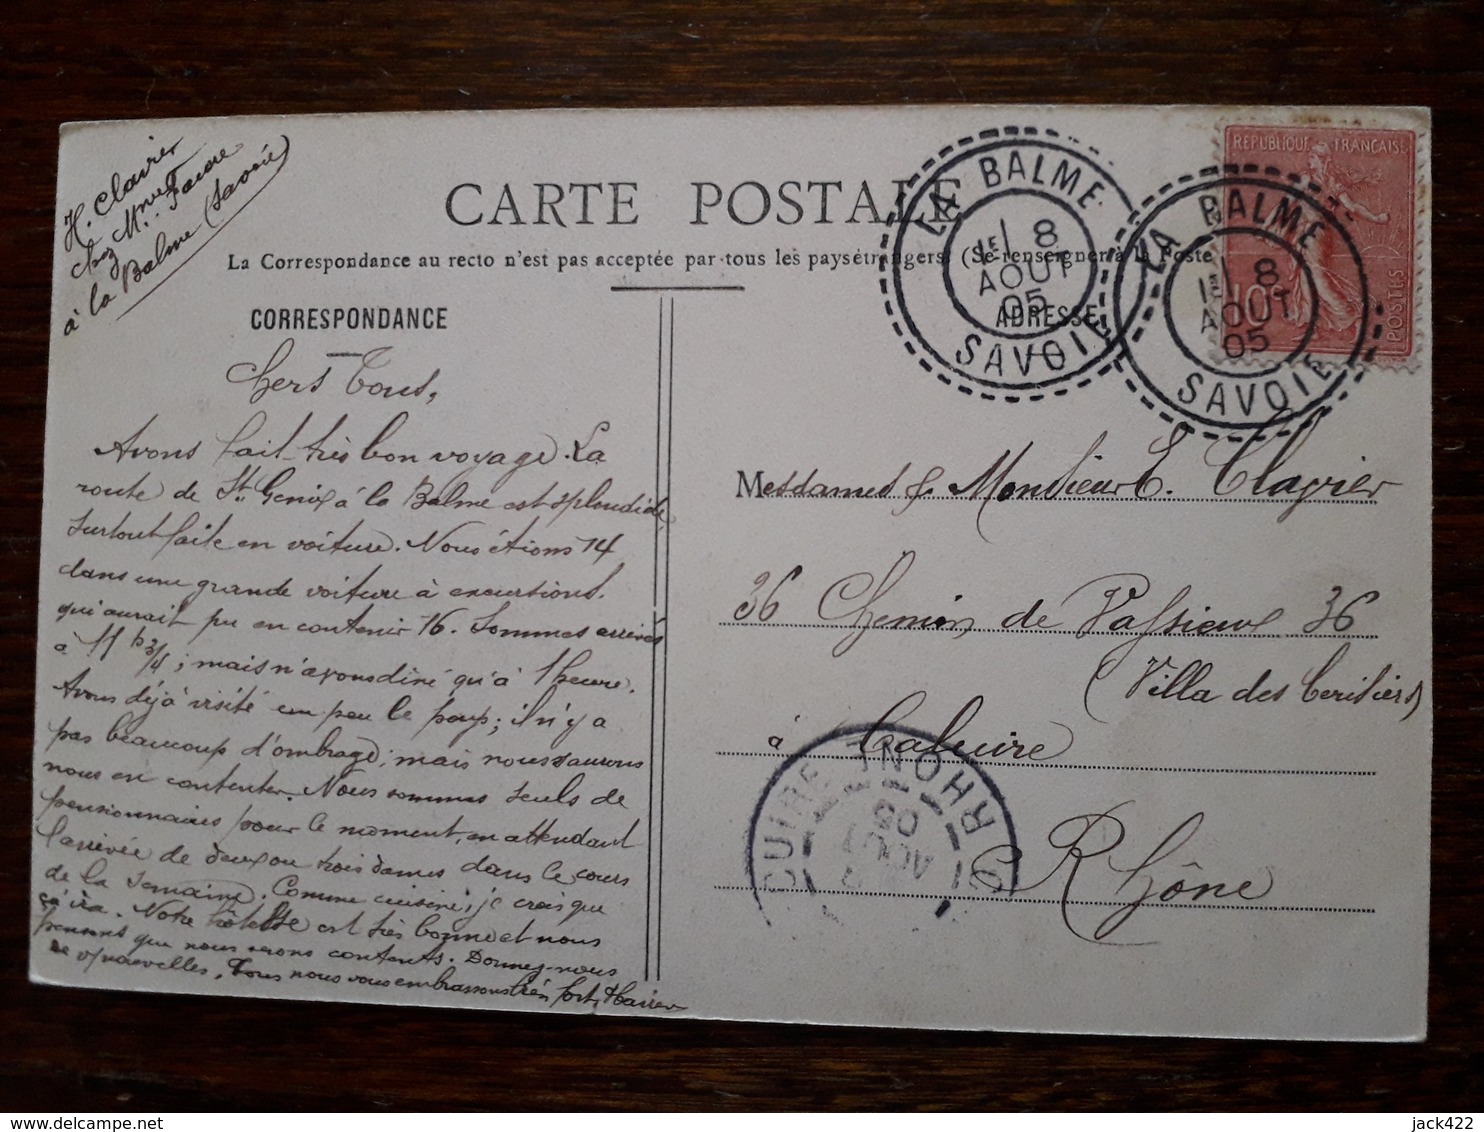 H. Clavier
chez Mme Vve Favre
à la Balme (Savoie)
CARTE POSTALE
La Correspondance au recto n'est pas acceptée par tous les pays étrangers (Se renseigner à la Poste
CORRESPONDANCE
ADRESSE
LA BALME
1E 8
AOUT
05
SAVOIE
LA BALME
1E 8
AOUT
05
SAVOIE
REPUBLIQUE FRANÇAISE
10
POSTES
Chers Tous,
Avons fait très bon voyage. La
route de St. Genix à la Balme est splendide
surtout faite en voiture. Nous étions 14
dans une grande voiture à excursions
qui aurait pu en contenir 16. Sommes arrivés
à 11 h 3/4; mais n'avons diné qu'à 1 heure.
Avons déjà visité un peu le pays; il n'y a
pas beaucoup d'ombrage; mais nous saurons
nous en contenter. Nous sommes seuls de
pensionnaires pour le moment, en attendant
l'arrivée de deux ou trois dames dans le cours
de la semaine. Comme cuisine, je crois que
ça ira. Notre hôtesse est très bonne et nous
pensons que nous serons contents. Donnez-nous
de vos nouvelles. Tous nous vous embrassons très fort.
Mesdames & Monsieur E. Clavier
36 Chemin de Vassieux 36
(Villa des Cerisiers)
à Caluire
Rhône
CUIRE
RHONE
AOUT
05
delcampe.net
jack422